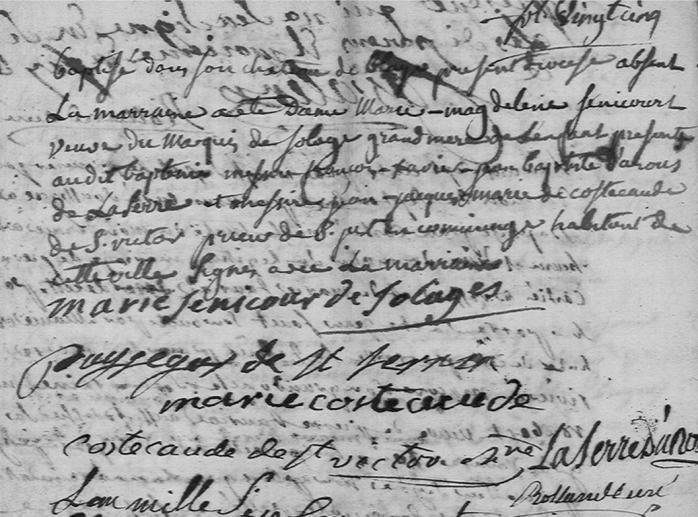 fol. vingt cinq
baptisé dans son chateau de blaye present diocese absent
La marraine a ete Dame Marie-magdelene senicourt
veuve du Marquis de Solage grand mere de Lenfant presents
audit baptême messire françois-xavier-jean baptiste daros
de Laserre et messire jean-jacques marie de costecaude
de St. victor prieur de St. en cominge habitant de
cette ville signes avec La marraine
marie senicour de solages
puysegur de st sernin
marie costecaude
costecaude de st victor Laserre d'aros
Rolland curé
Lan mille sept